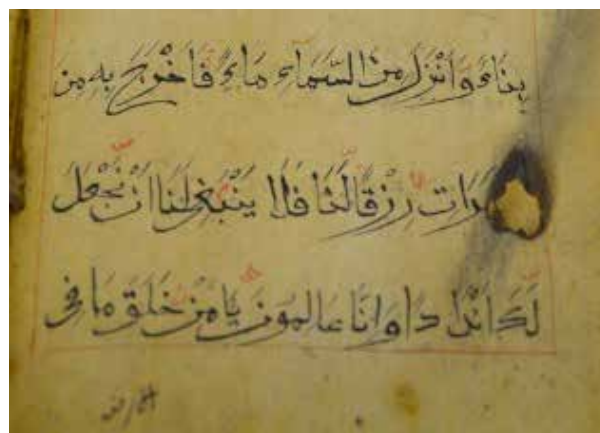 بِنَاءً وَاَنْزَلَ مِنَ السَّمَاءِ مَاءً فَاَخْرَجَ بِهِ مِنَ
مَرَاتِ رِزْقًا لَنَا فَلَا يَنْبَغِي لَنَا اَنْ نَجْعَلَ
لَكَ اَنْدَادًا وَاَنَا عَالِمُونَ يَا مَنْ خَلَقَ مَا فِي